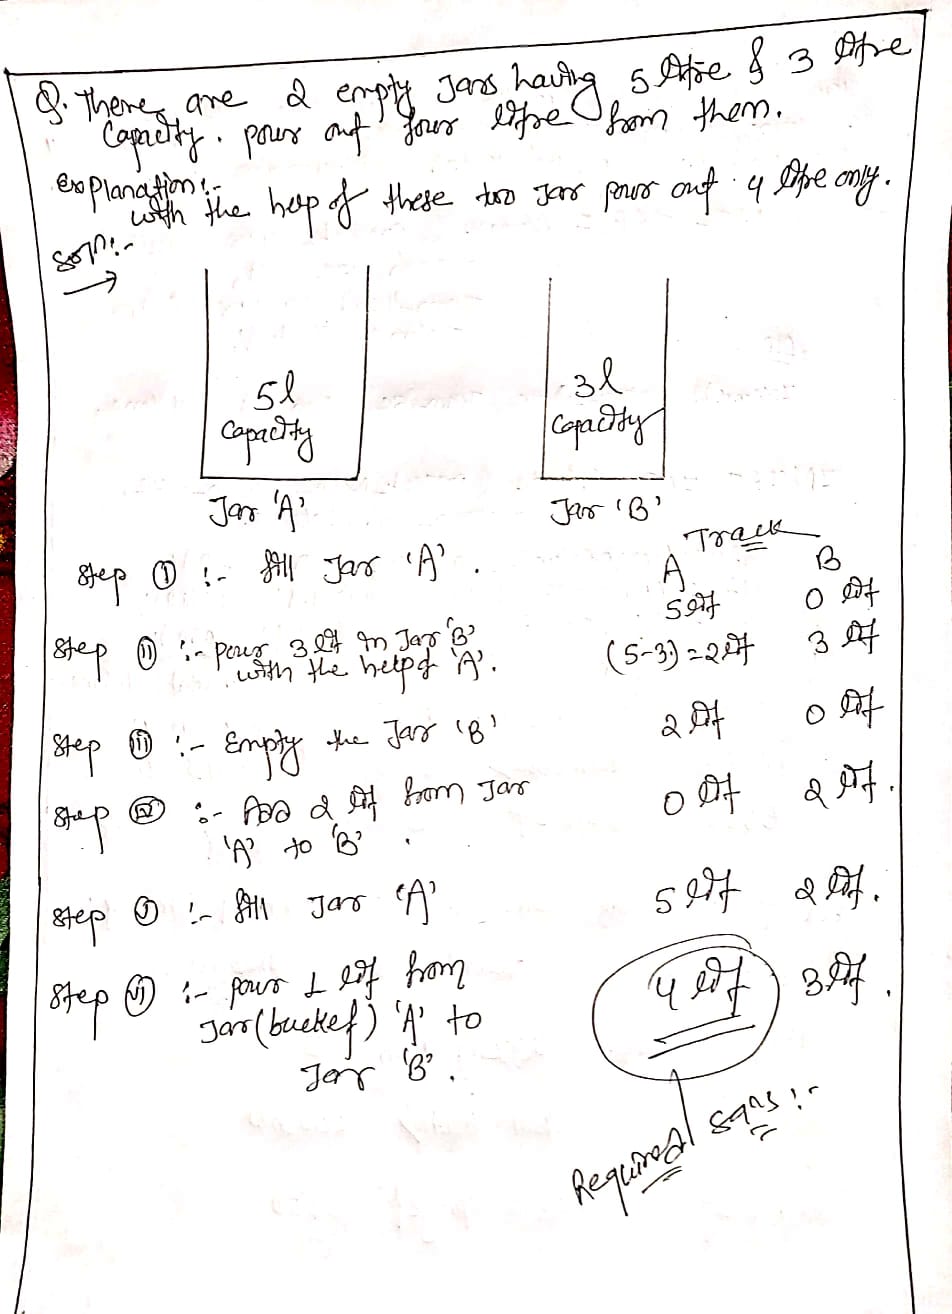 Q. There are 2 empty Jars having 5 litre & 3 litre
Capacity. pour out four litre from them.
Explanation:-
with the help of these two Jar pour out 4 litre only.
Soln:-
5l
Capacity
3l
Capacity
Jar 'A'
Jar 'B'
Track
A B
Step (i) :- fill Jar 'A'. 5 lit 0 lit
Step (ii) :- pour 3 lit in Jar 'B'
with the help of 'A'. (5-3)=2 lit 3 lit
Step (iii) :- Empty the Jar 'B' 2 lit 0 lit
Step (iv) :- Add 2 lit from Jar
'A' to 'B'. 0 lit 2 lit.
Step (v) :- fill Jar 'A' 5 lit 2 lit.
Step (vi) :- pour 1 lit from
Jar (bucket) 'A' to
Jar 'B'. 4 lit 3 lit.
Required